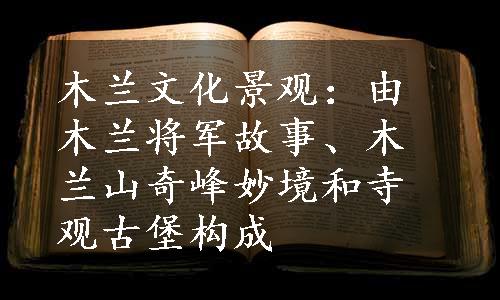 木兰文化景观：由
木兰将军故事、木
兰山奇峰妙境和寺
观古堡构成